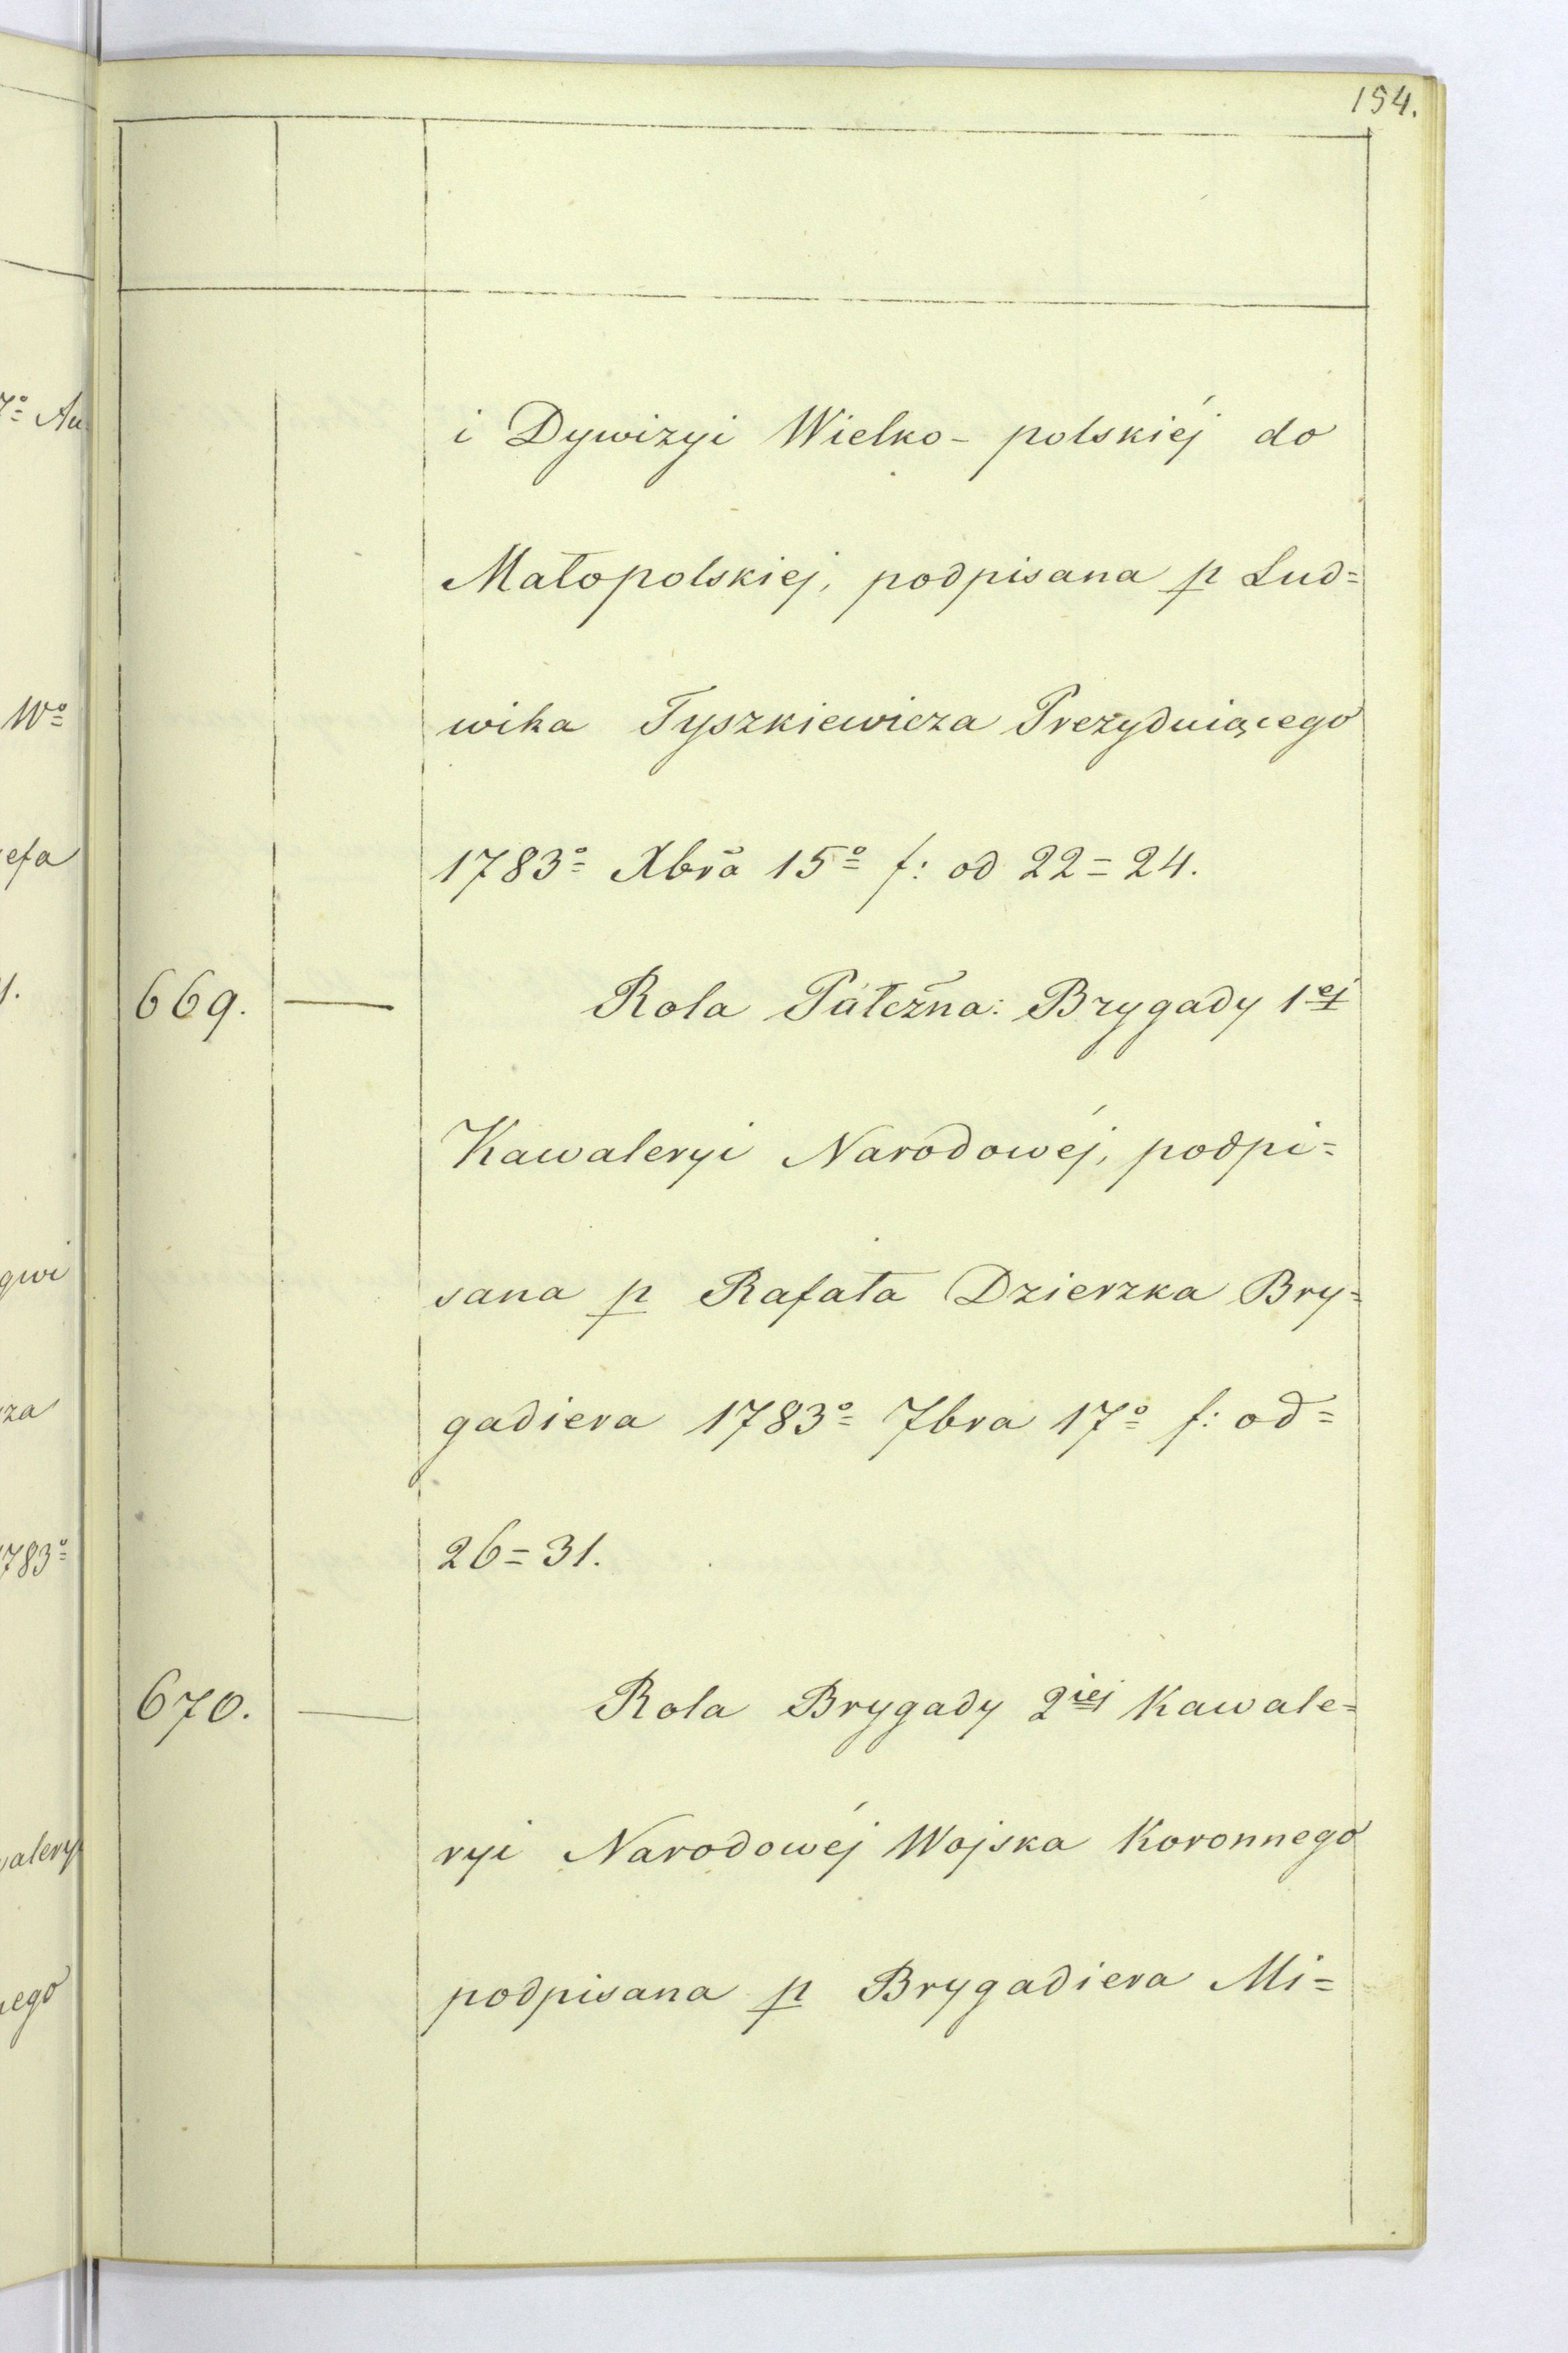 154.
i Dywizyi Wielko- polskiéj do
Małopolskiej, podpisana p Lud=
wika Tyszkiewicza Prezyduiącego
1783º Xbra 15º f: od 22=24.
669. — Rola Półczna: Brygady 1ej
Kawaleryi Narodowéj, podpi=
sana p Rafała Dzierzka Bry=
gadiera 1783º 7bra 17º f: od=
26=31.
670. — Rola Brygady 2iej Kawale=
ryi Narodowéj Wojska Koronnego
podpisana p Brygadiera Mi=
7º Au
Wº
efa
1.
gwi
za
1783º
alery
ego